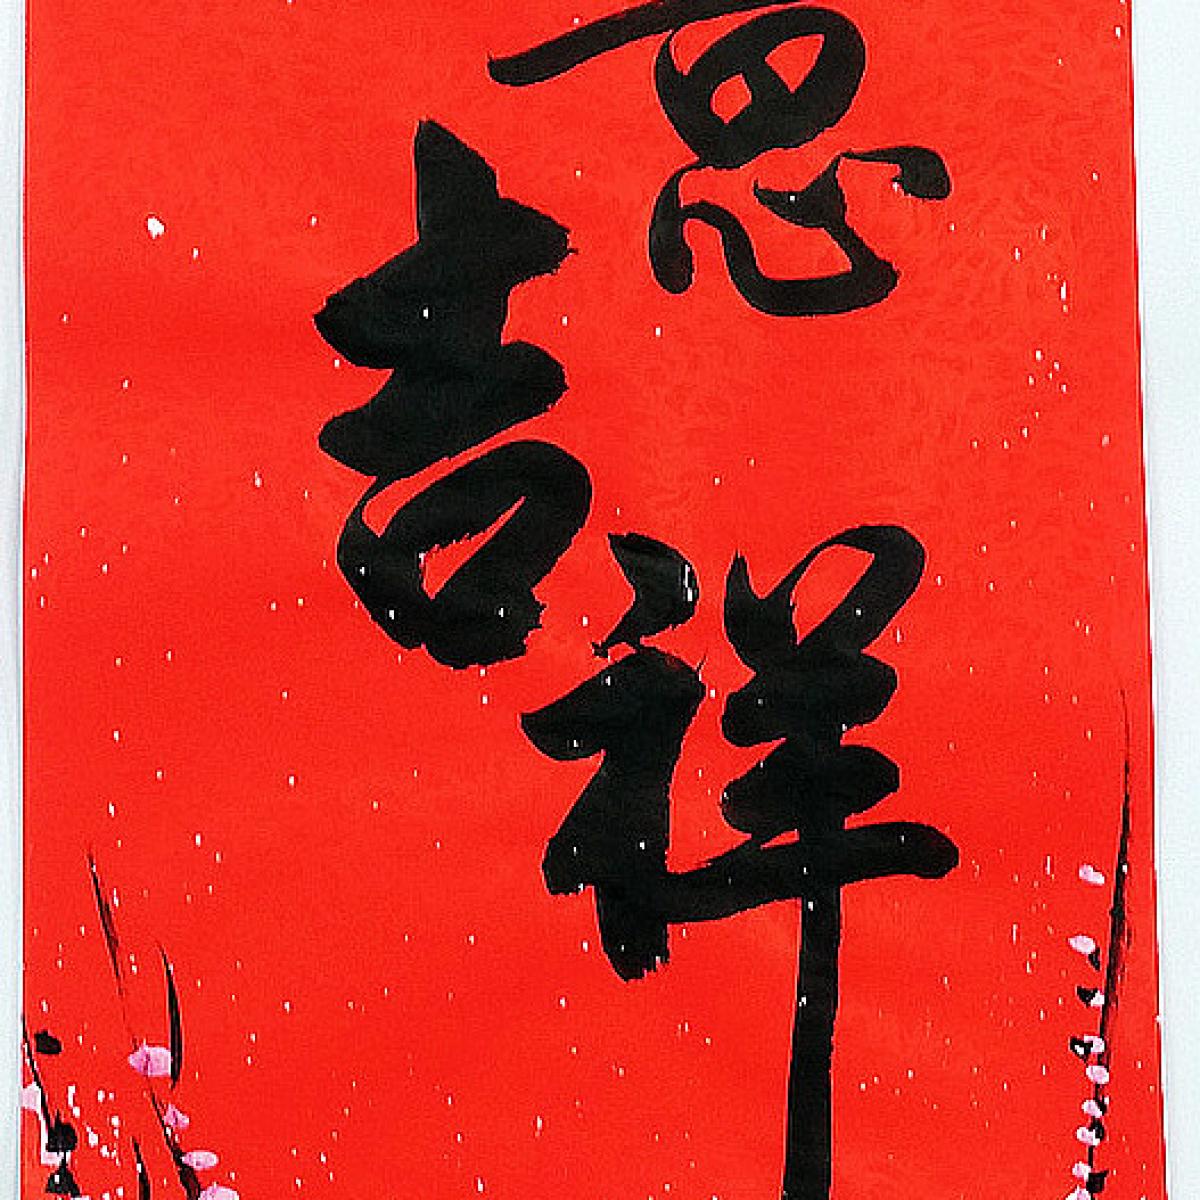 意
吉
祥